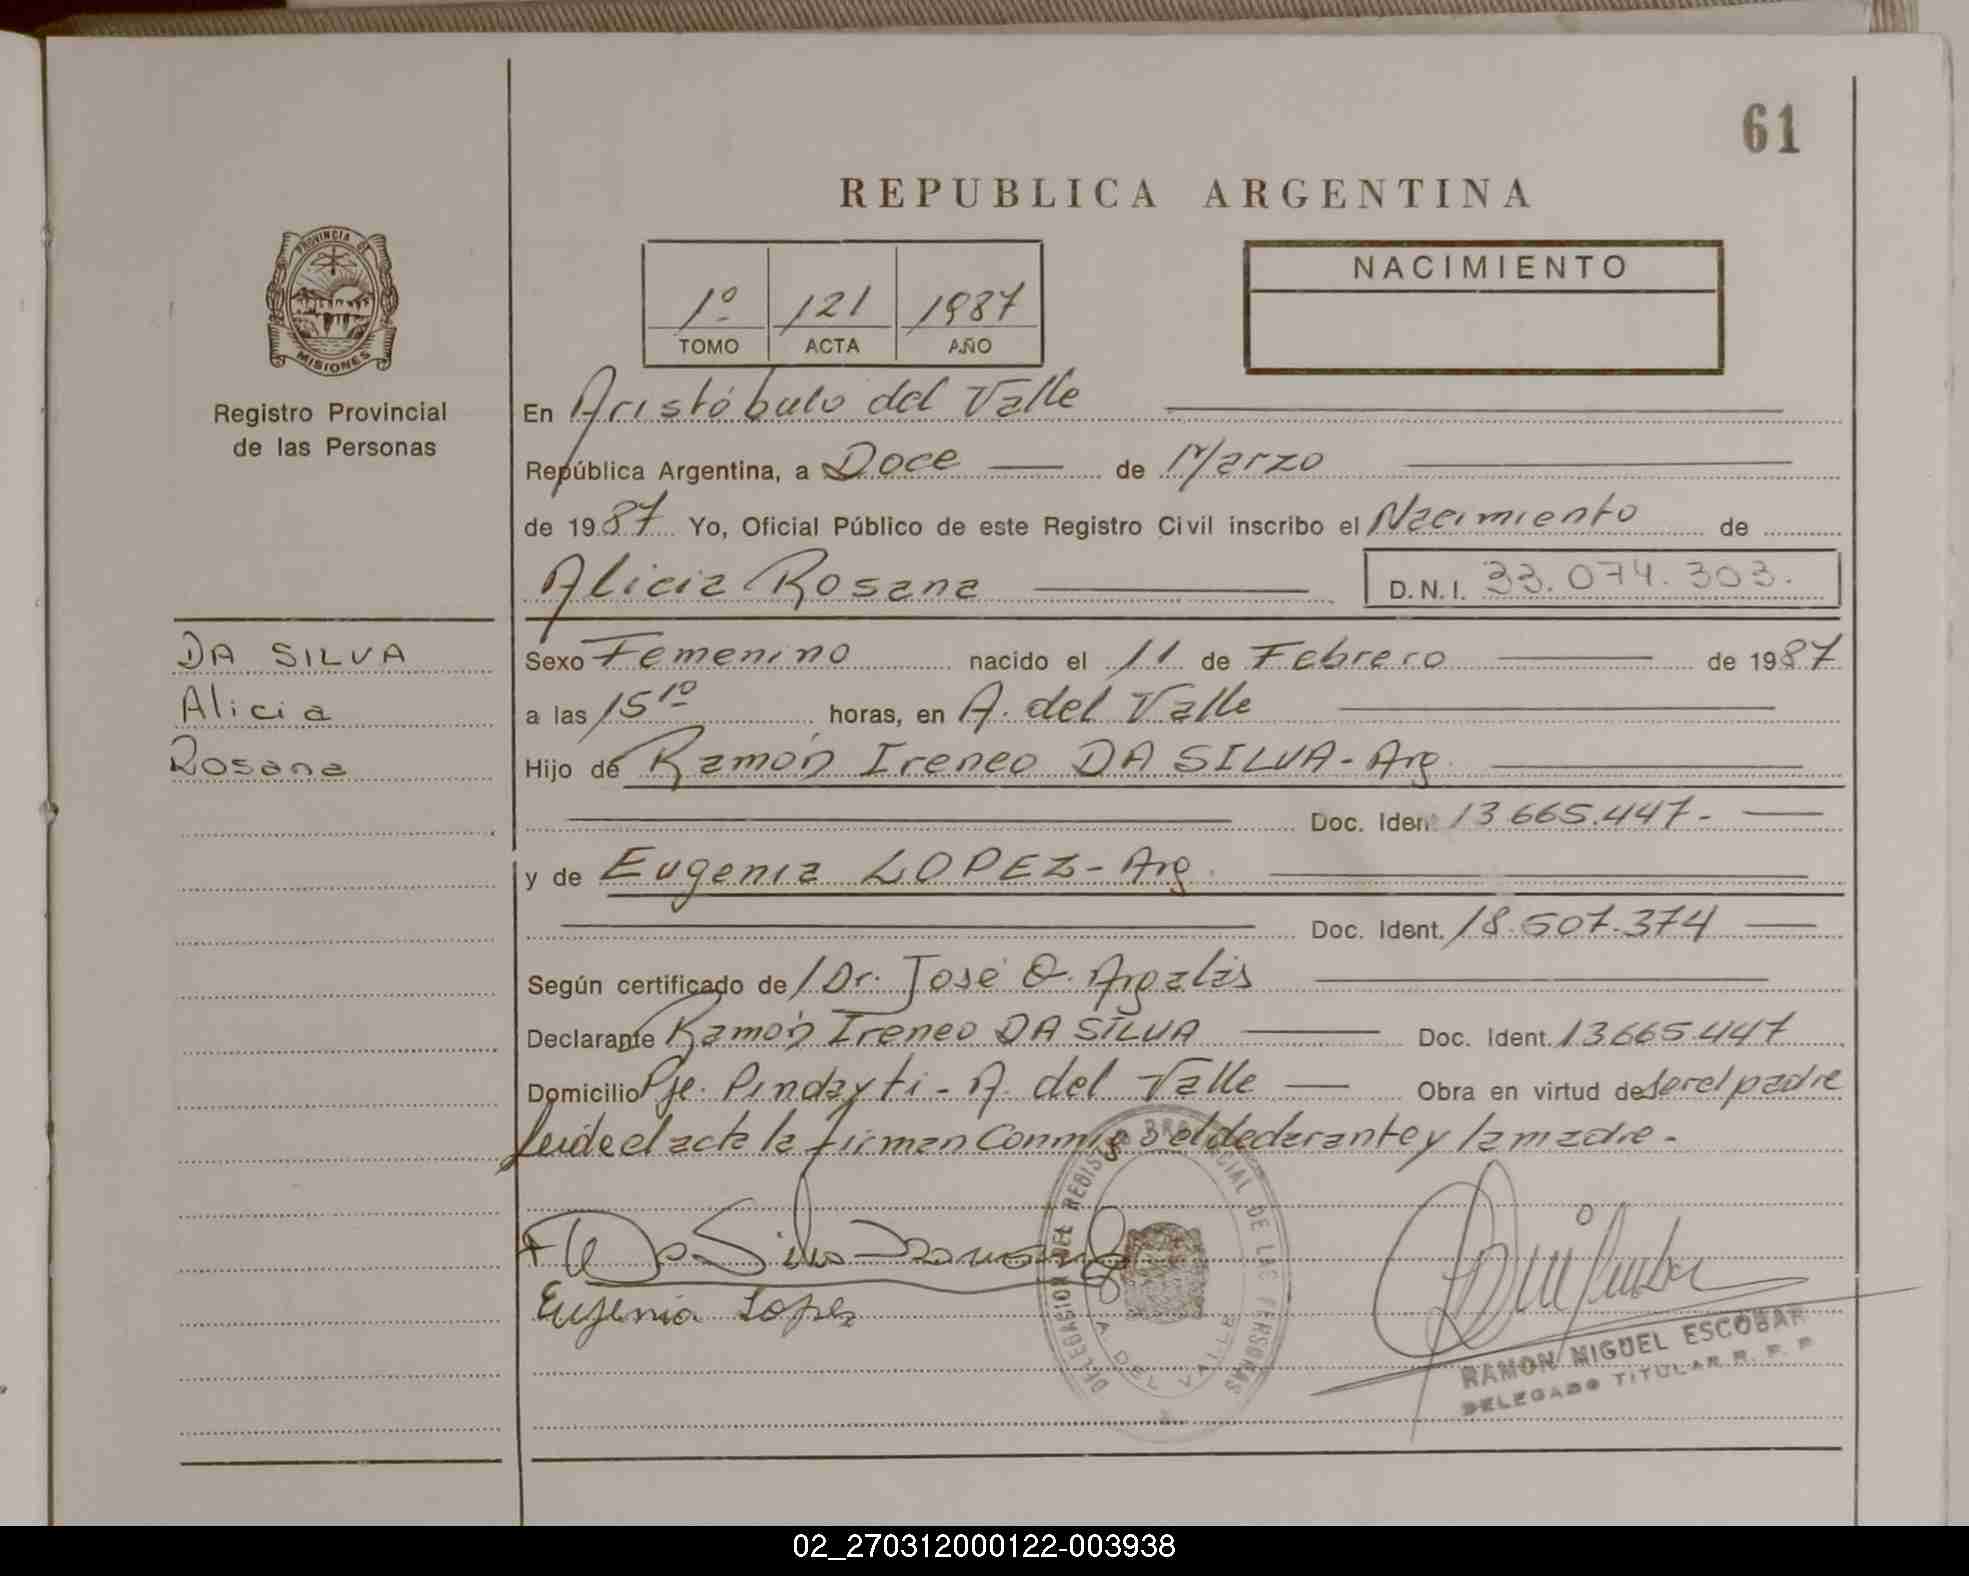 61
REPUBLICA ARGENTINA
PROVINCIA DE
MISIONES
Registro Provincial
de las Personas
1º 121 1987
TOMO ACTA AÑO
NACIMIENTO
En Aristóbulo del Valle
República Argentina, a Doce de Marzo
de 1987 Yo, Oficial Público de este Registro Civil inscribo el Nacimiento de
Alicia Rosana D.N.I. 33.074.303.
DA SILVA
Alicia
Rosana
Sexo Femenino nacido el 11 de Febrero de 1987
a las 15 1º horas, en A. del Valle
Hijo de Ramón Ireneo DA SILVA - Arg.
Doc. Ident 13.665.447-
y de Eugenia LOPEZ - Arg.
Doc. Ident. 18.507.374
Según certificado de Dr. José O. Argalás
Declarante Ramón Ireneo DA SILVA Doc. Ident. 13.665.447
Domicilio Pje. Pindayti - A. del Valle Obra en virtud de ser el padre
Leida el acta la firman conmigo el declarante y la madre.-
Da Silva Ramon
Eugenia Lopez
DELEGACION DEL REGISTRO PROVINCIAL DE LAS PERSONAS
A. DEL VALLE
RAMON MIGUEL ESCOBAR
DELEGADO TITULAR R. P. P.
02_270312000122-003938